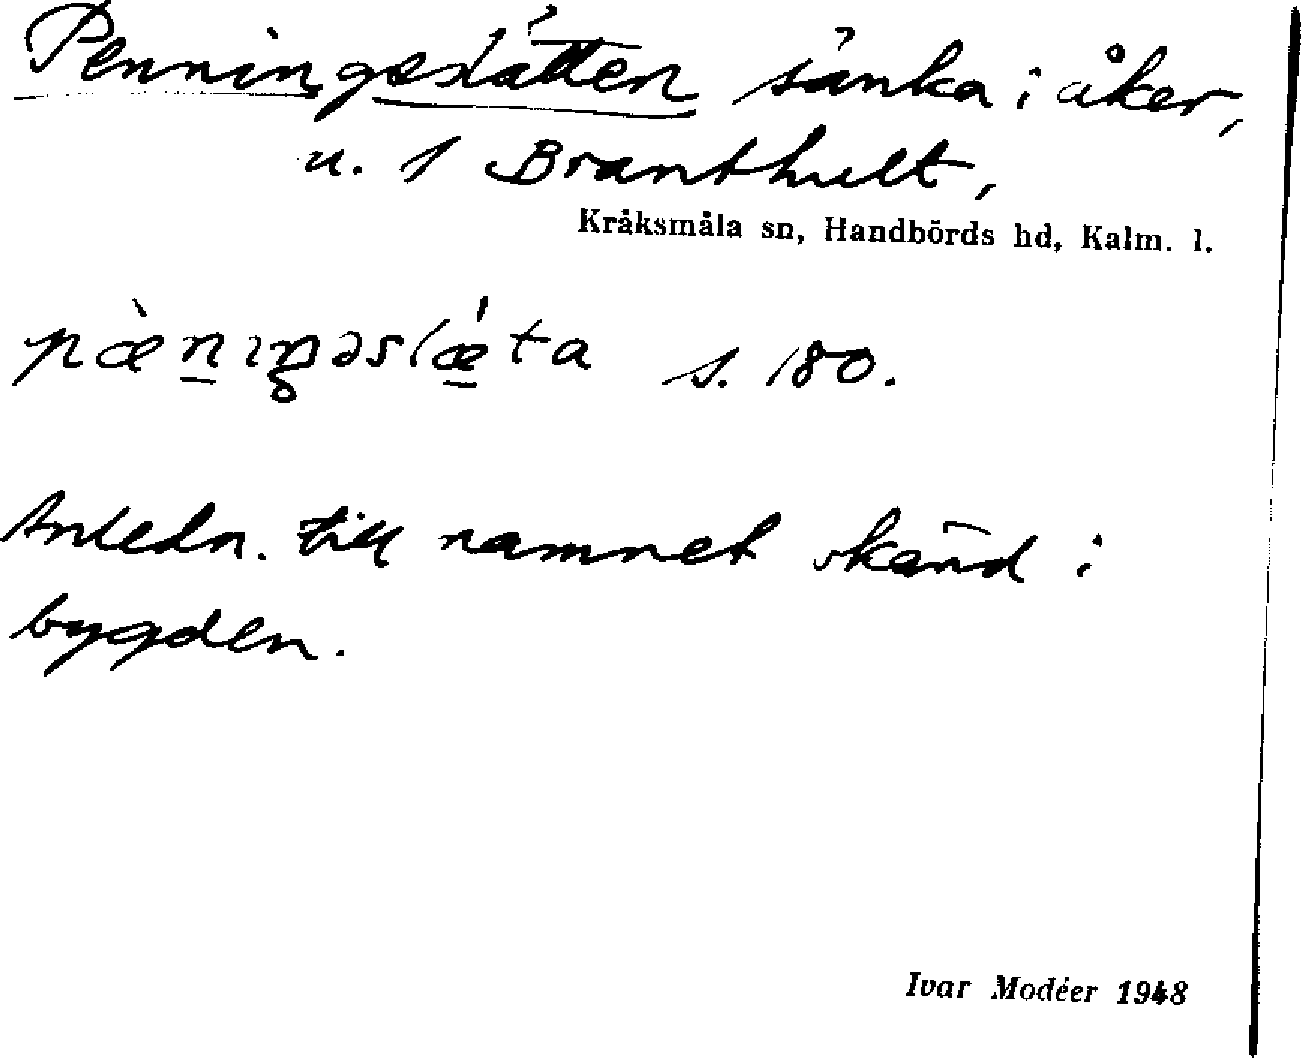 Penningeslätten sänka i åker,
u. 1 Branthult,
Kråksmåla sn, Handbörds hd, Kalm. l.
pæ̀nıŋəslǽta s. 180.
Anledn. till namnet okänd i
bygden.
Ivar Modéer 1948